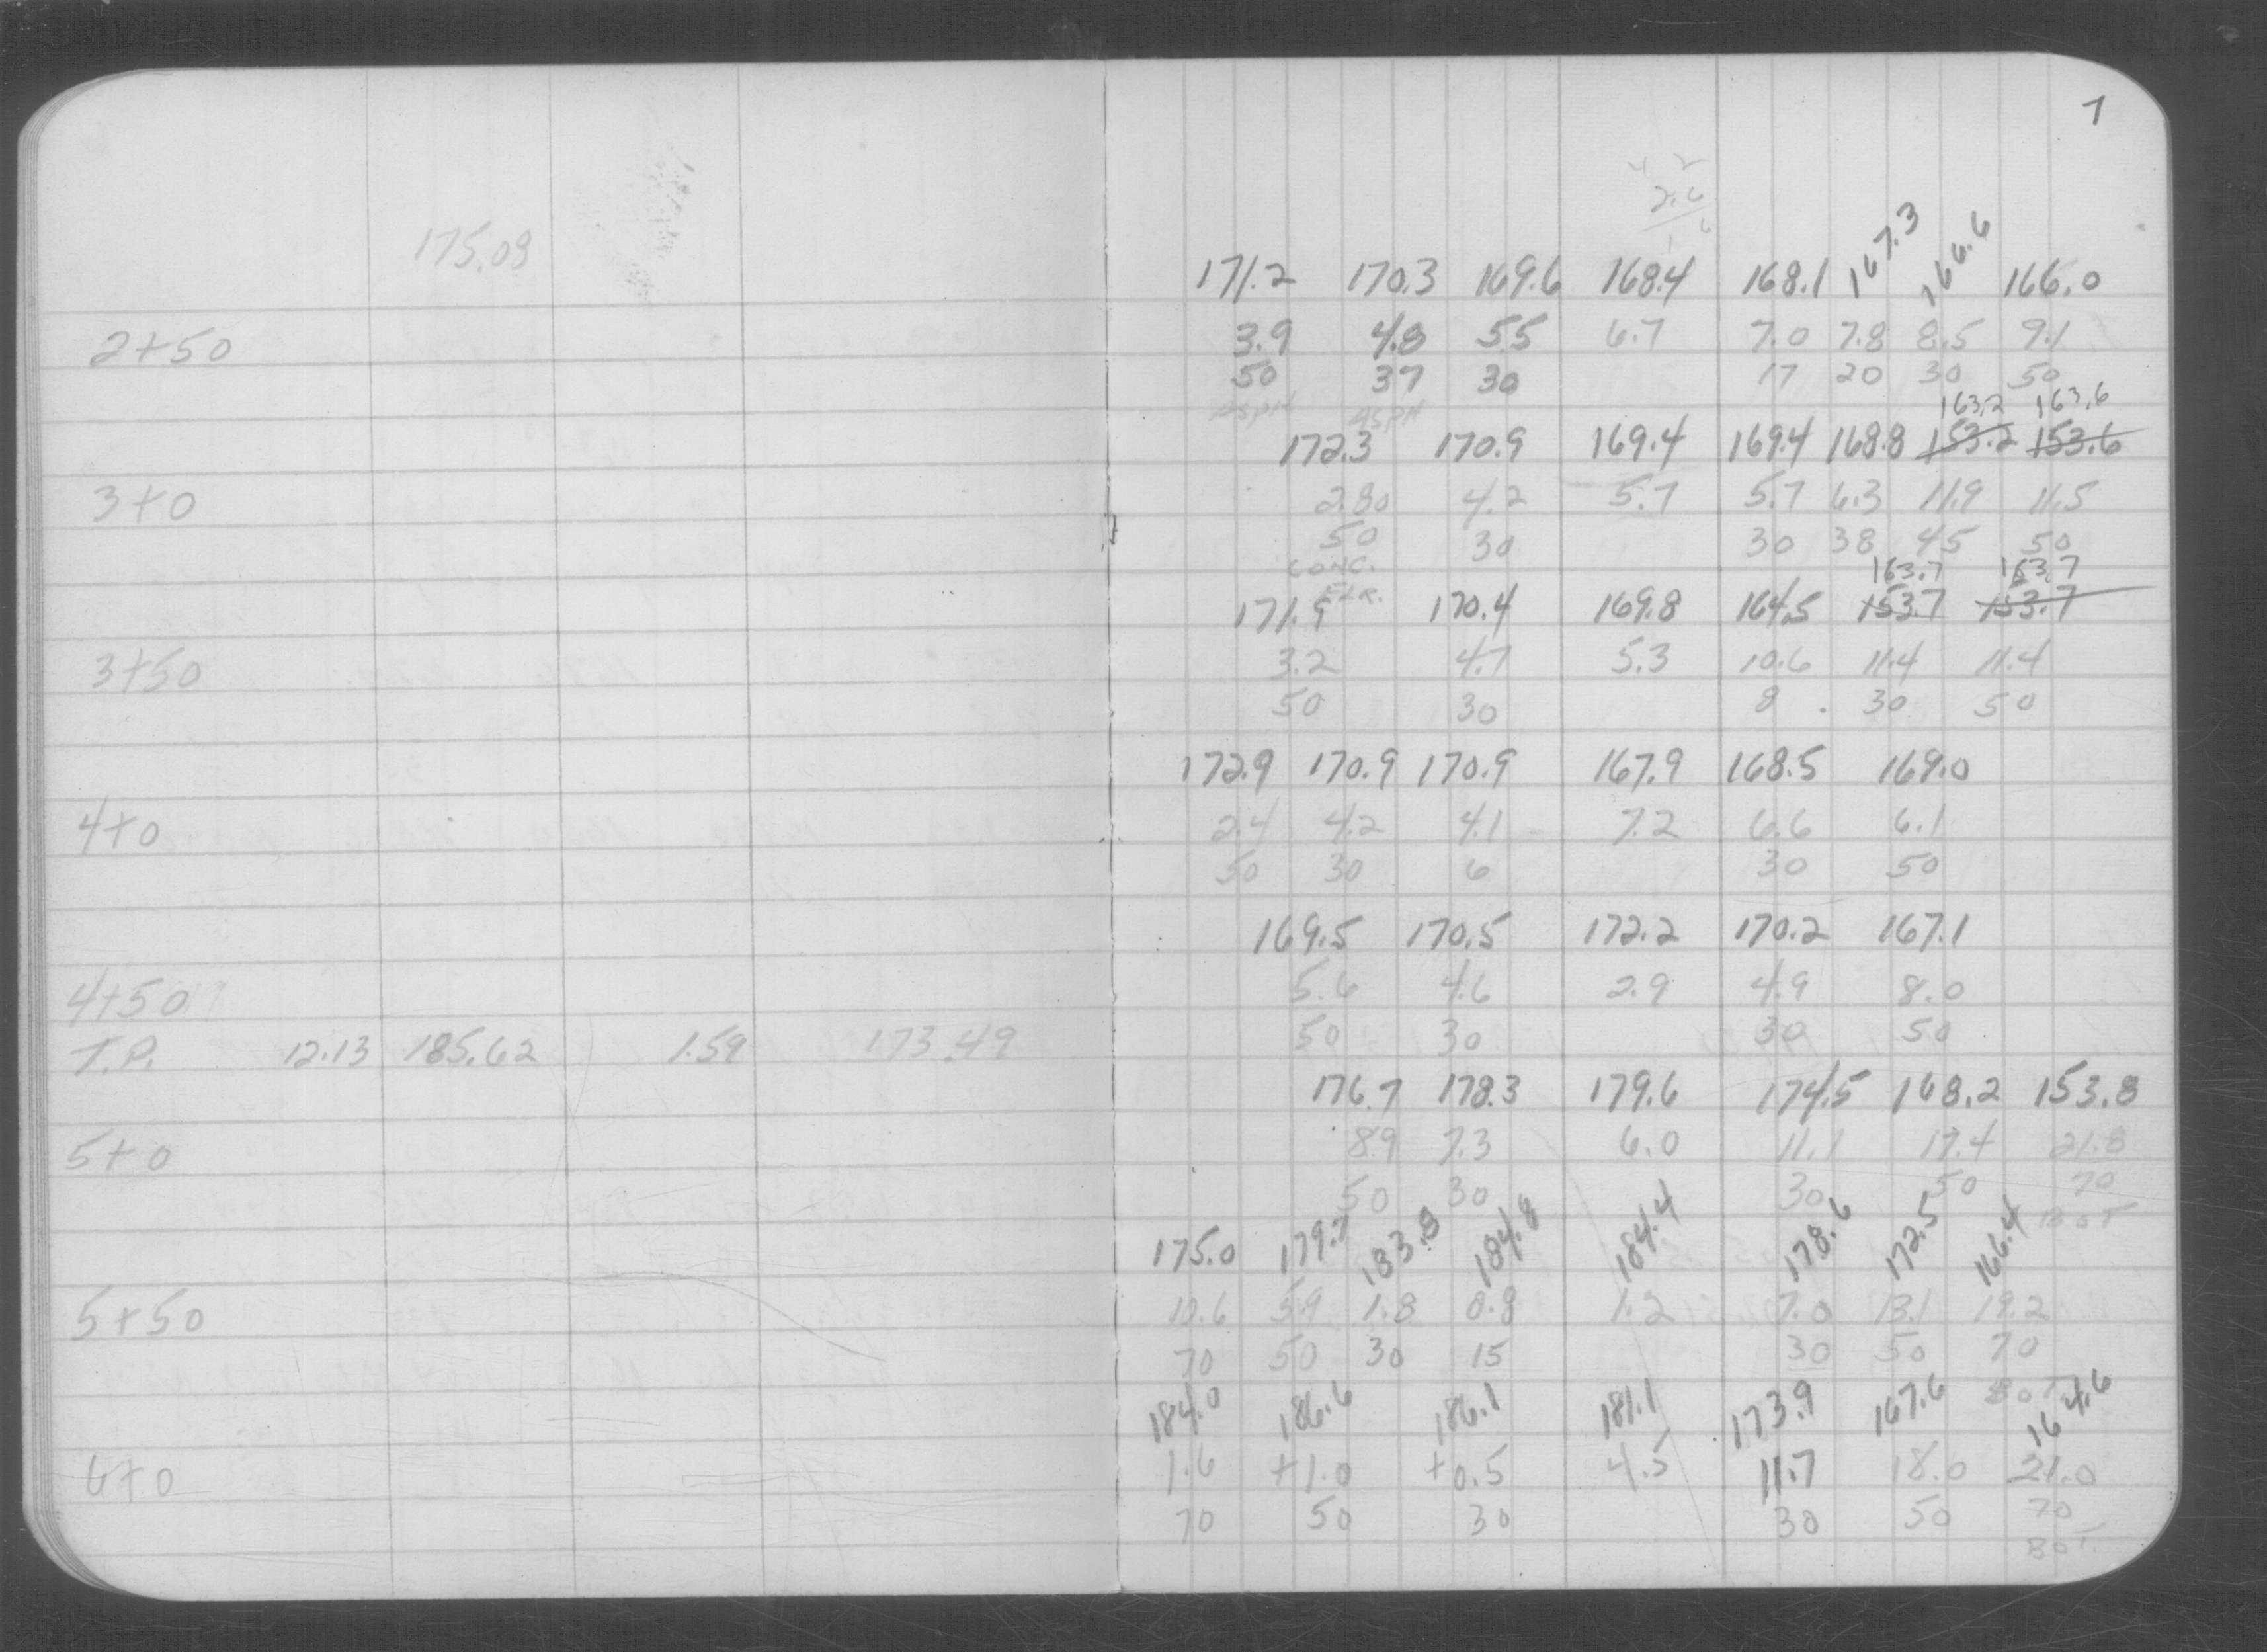 7
2.6
175.08 171.2 170.3 169.6 168.4 168.1 167.3 166.6 166.0
2+50 3.9 4.8 5.5 6.7 7.0 7.8 8.5 9.1
50 37 30 17 20 30 50
ASPH ASPH 163.2 163.6
172.3 170.9 169.4 169.4 168.8 153.2 153.6
3+0 2.80 4.2 5.7 5.7 6.3 11.9 11.5
50 30 30 38 45 50
CONC. 163.7 163.7
FLR.
171.9 170.4 169.8 164.5 153.7 153.7
3+50 3.2 4.7 5.3 10.6 11.4 11.4
50 30 8 30 50
172.9 170.9 170.9 167.9 168.5 169.0
4+0 2.4 4.2 4.1 7.2 6.6 6.1
50 30 6 30 50
169.5 170.5 172.2 170.2 167.1
4+50 5.6 4.6 2.9 4.9 8.0
T.P. 12.13 185.62 1.59 173.49 50 30 30 50
176.7 178.3 179.6 174.5 168.2 153.8
5+0 8.9 7.3 6.0 11.1 17.4 21.8
50 30 30 50 70
BOT
175.0 179.7 183.8 184.8 184.4 178.6 172.5 166.4
5+50 10.6 5.9 1.8 0.8 1.2 7.0 13.1 19.2
70 50 30 15 30 50 70
BOT.
184.0 186.6 186.1 181.1 173.9 167.6 164.6
6+0 1.6 +1.0 +0.5 4.5 11.7 18.0 21.0
70 50 30 30 50 70
BOT.